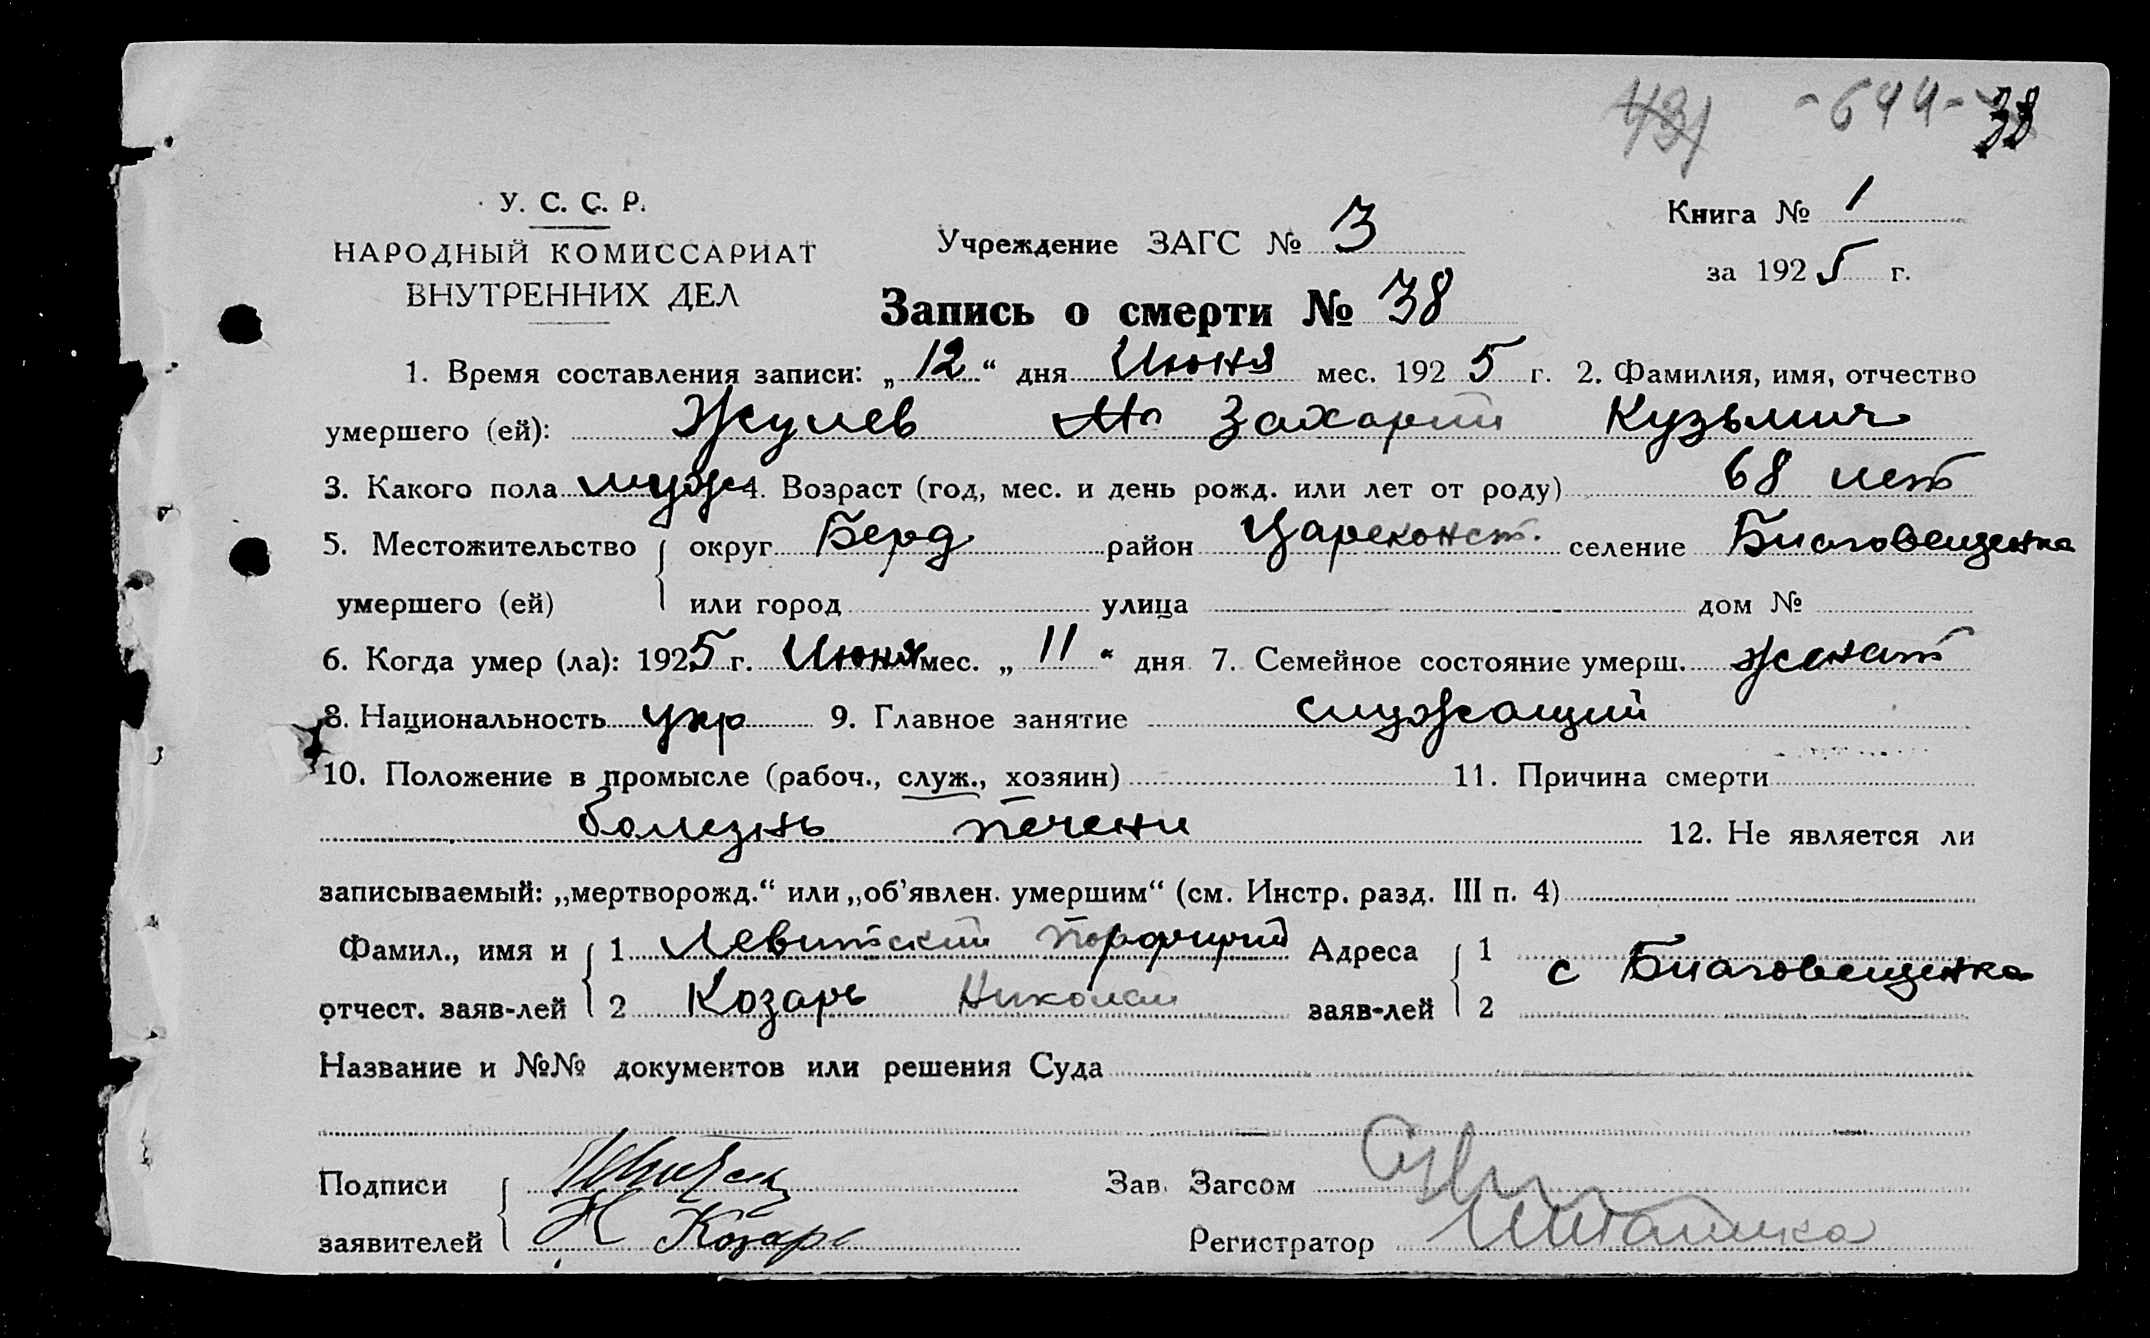 431 -644- 38
У. С. С. Р.
НАРОДНЫЙ КОМИССАРИАТ
ВНУТРЕННИХ ДЕЛ
Учреждение ЗАГС № 3
Книга № 1
за 1925 г.
Запись о смерти № 38
1. Время составления записи: „12“ дня Июня мес. 1925 г. 2. Фамилия, имя, отчество
умершего (ей): Жулев Захарий Кузьмич
3. Какого пола муж 4. Возраст (год, мес. и день рожд. или лет от роду) 68 лет
5. Местожительство округ Берд район Цареконст. селение Благовещенка
умершего (ей) или город улица дом №
6. Когда умер (ла): 1925 г. Июня мес. „11“ дня 7. Семейное состояние умерш. женат
8. Национальность укр 9. Главное занятие служащий
10. Положение в промысле (рабоч., служ., хозяин) 11. Причина смерти
болезнь печени 12. Не является ли
записываемый: „мертворожд.“ или „об’явлен. умершим“ (см. Инстр. разд. III п. 4)
Фамил., имя и 1 Левитский Порфирий Адреса 1 с Благовещенка
отчест. заяв-лей 2 Козарь Николай заяв-лей 2
Название и №№ документов или решения Суда
Подписи Зав. Загсом
заявителей Н Козарь Регистратор